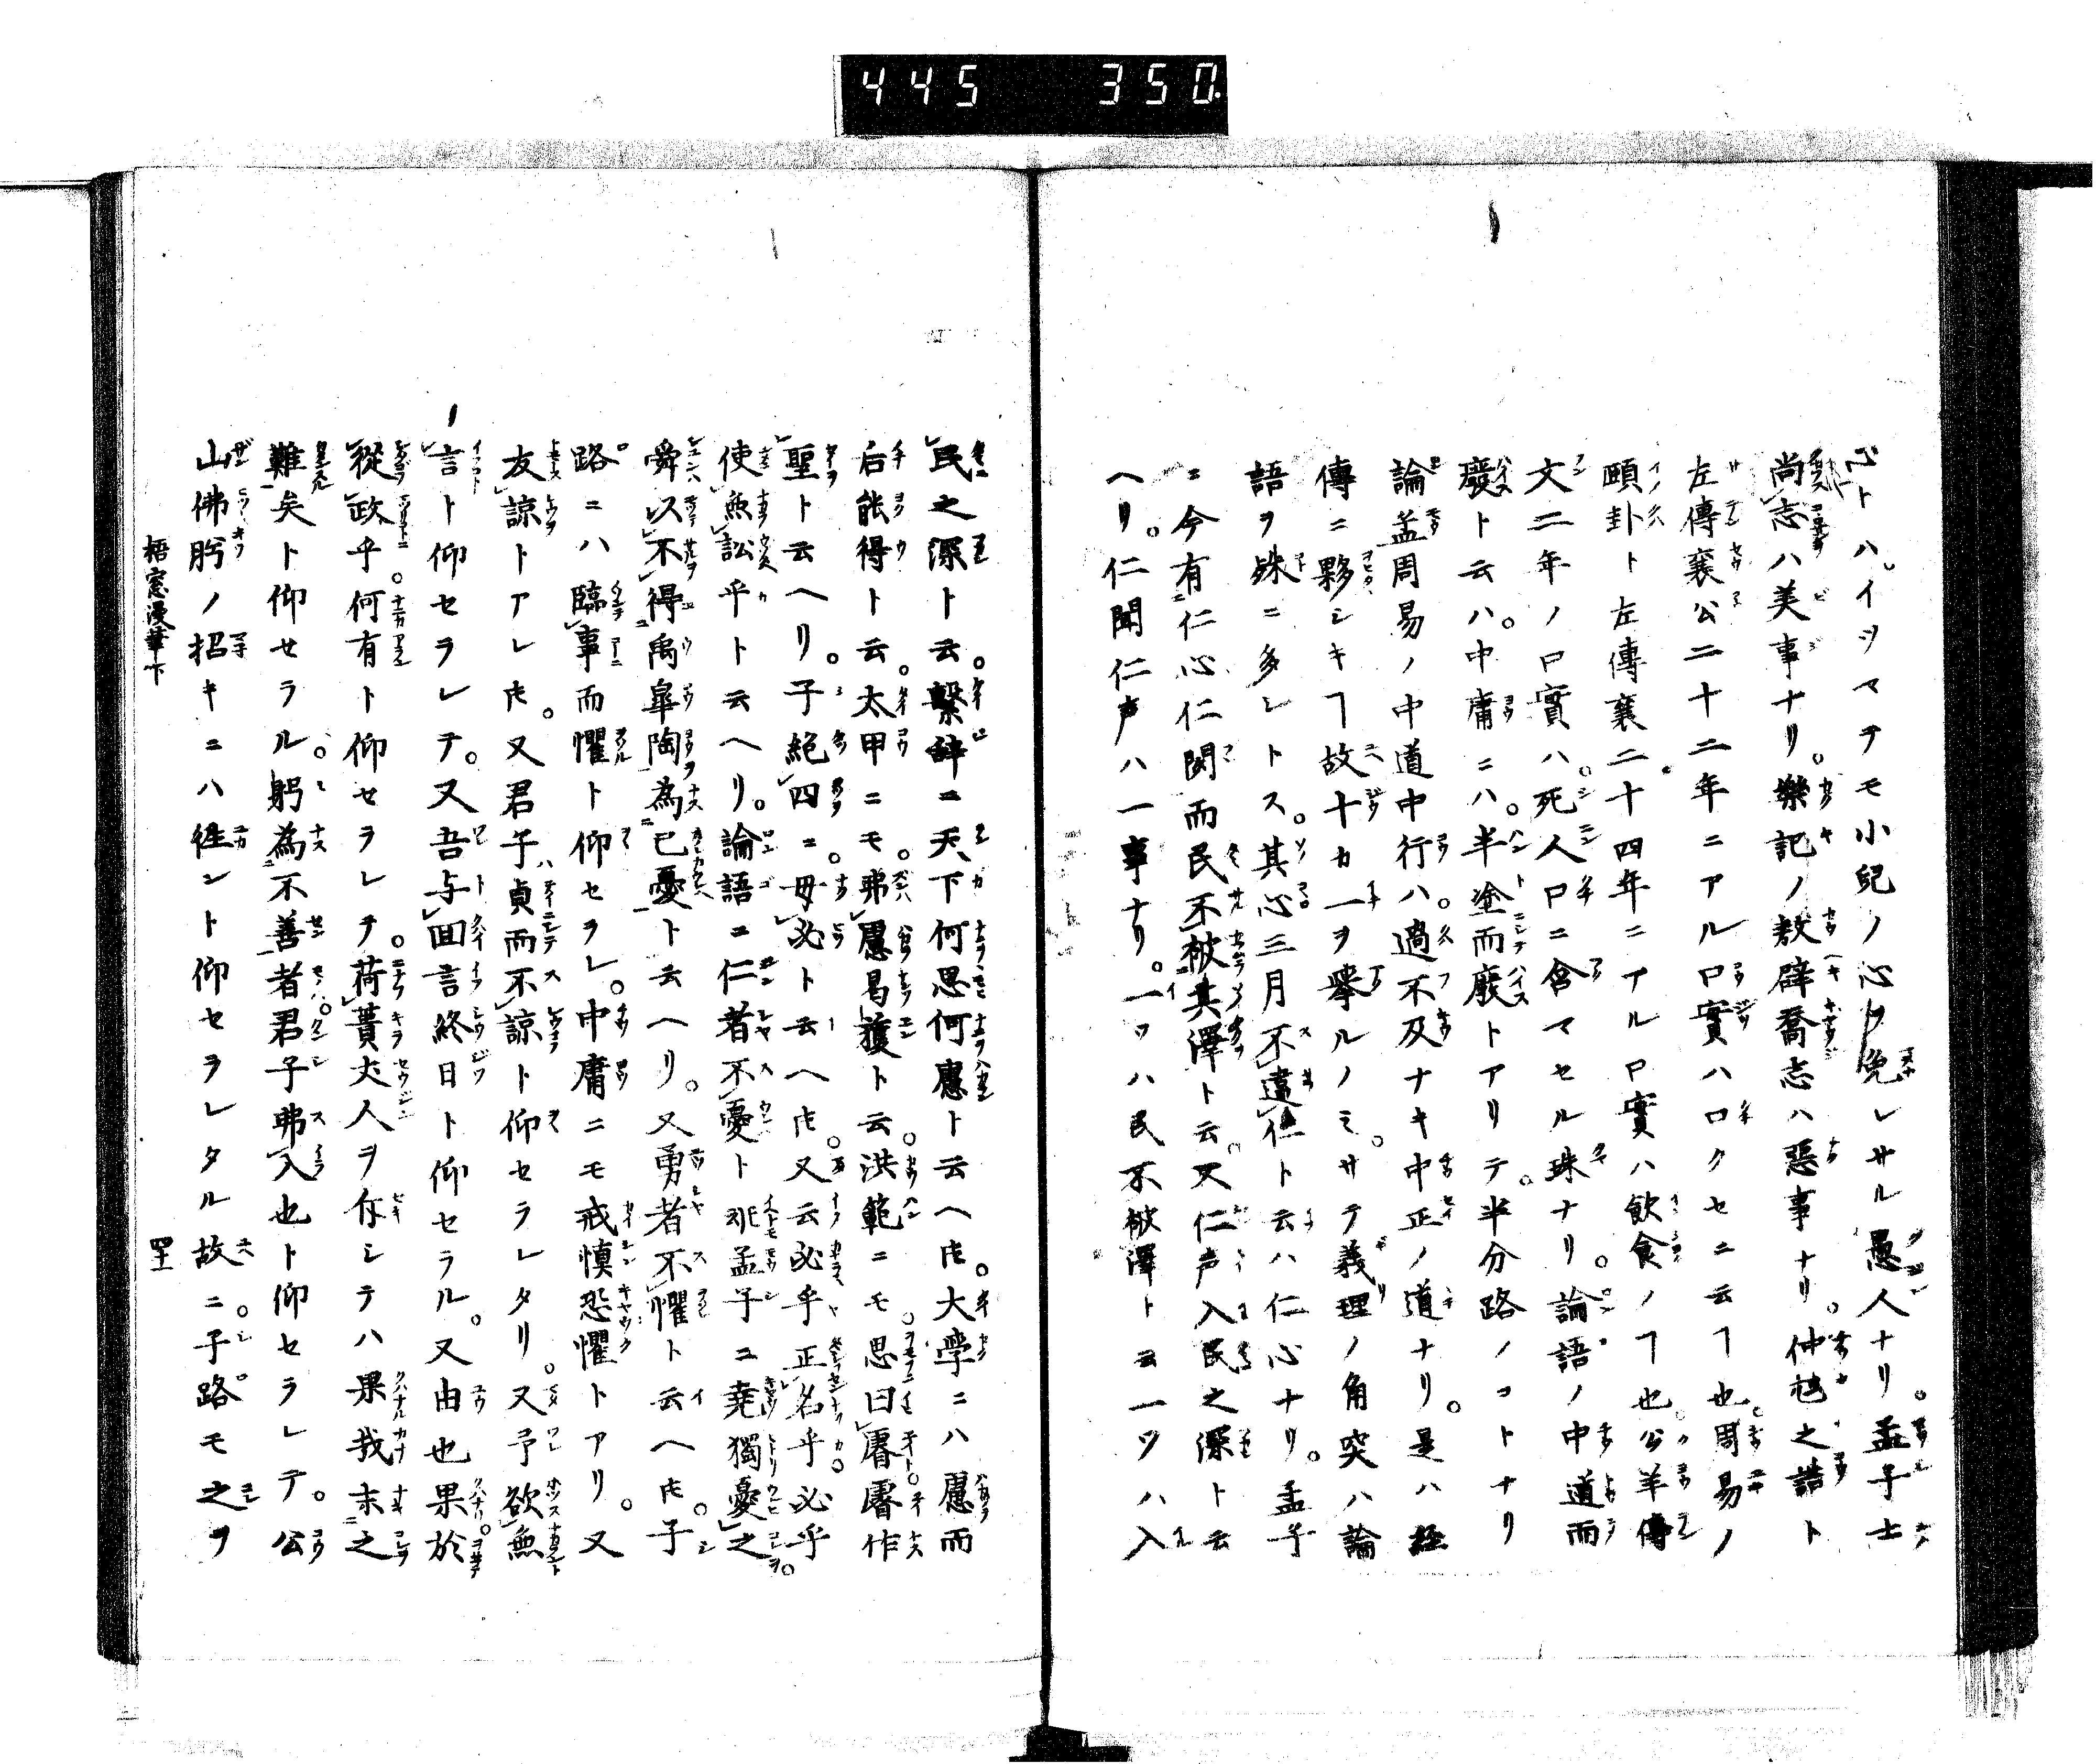 445 350
トハ。イツマテモ小兒ノ心ヲ免レサル愚人ナリ。孟子士
尚志ハ美事ナリ。樂記ノ敖辟喬志ハ惡事ナリ。仲虺之誥ト
左傳襄公二十二年ニアル口實ハロクセニ云ヿ也。周易ノ
頤卦ト左傳襄二十四年ニアル口實ハ飮食ノヿ也。公羊傳
文二年ノ口實ハ。死人口ニ含マセル珠ナリ。論語ノ中道而
廢ト云ハ。中庸ニハ。半塗而廢トアリテ。半分路ノコトナリ
論孟周易ノ中道中行ハ。過不及ナキ中正ノ道ナリ。是ハ經
傳ニ夥シキヿ故十カ一ヲ擧ルノミ。サテ義理ノ角突ハ論
語ヲ殊ニ多シトス。其心三月不違仁ト云ハ仁心ナリ。孟子
ニ今有仁心仁聞而民不被其澤ト云。又仁声入民之深ト云
ヘリ。仁聞仁声ハ一事ナリ。一ツハ民不被澤ト云一ツハ入
民之深ト云。繫辞ニ天下何思何慮ト云ヘ𪜈。大學ニハ慮而
后能得ト云。太甲ニモ。弗慮曷獲ト云。洪範ニモ。思曰睿睿作
聖ト云ヘリ。子絶四ニ。毋必ト云ヘ𪜈。又云必乎正名乎必乎
使無訟乎ト云ヘリ。論語ニ仁者不憂ト𪜈孟子ニ堯獨憂之
舜以不得禹皐陶為已憂ト云ヘリ。又勇者不懼ト云ヘ𪜈。子
路ニハ臨事而懼ト仰セラレ。中庸ニモ戒愼恐懼トアリ。又
友諒トアレ𪜈。又君子貞而不諒ト仰セラレタリ。又予欲無
言ト仰セラレテ。又吾与囬言終日ト仰セラル。又由也果於
從政乎何有ト仰セラレテ。荷蕢丈人ヲ斥シテハ果哉末之
難矣ト仰セラル。躬為不善者君子弗入也ト仰セラレテ。公
山佛肸ノ招キニハ徃ント仰セラレタル故ニ。子路モ之ヲ
梧窓漫筆下